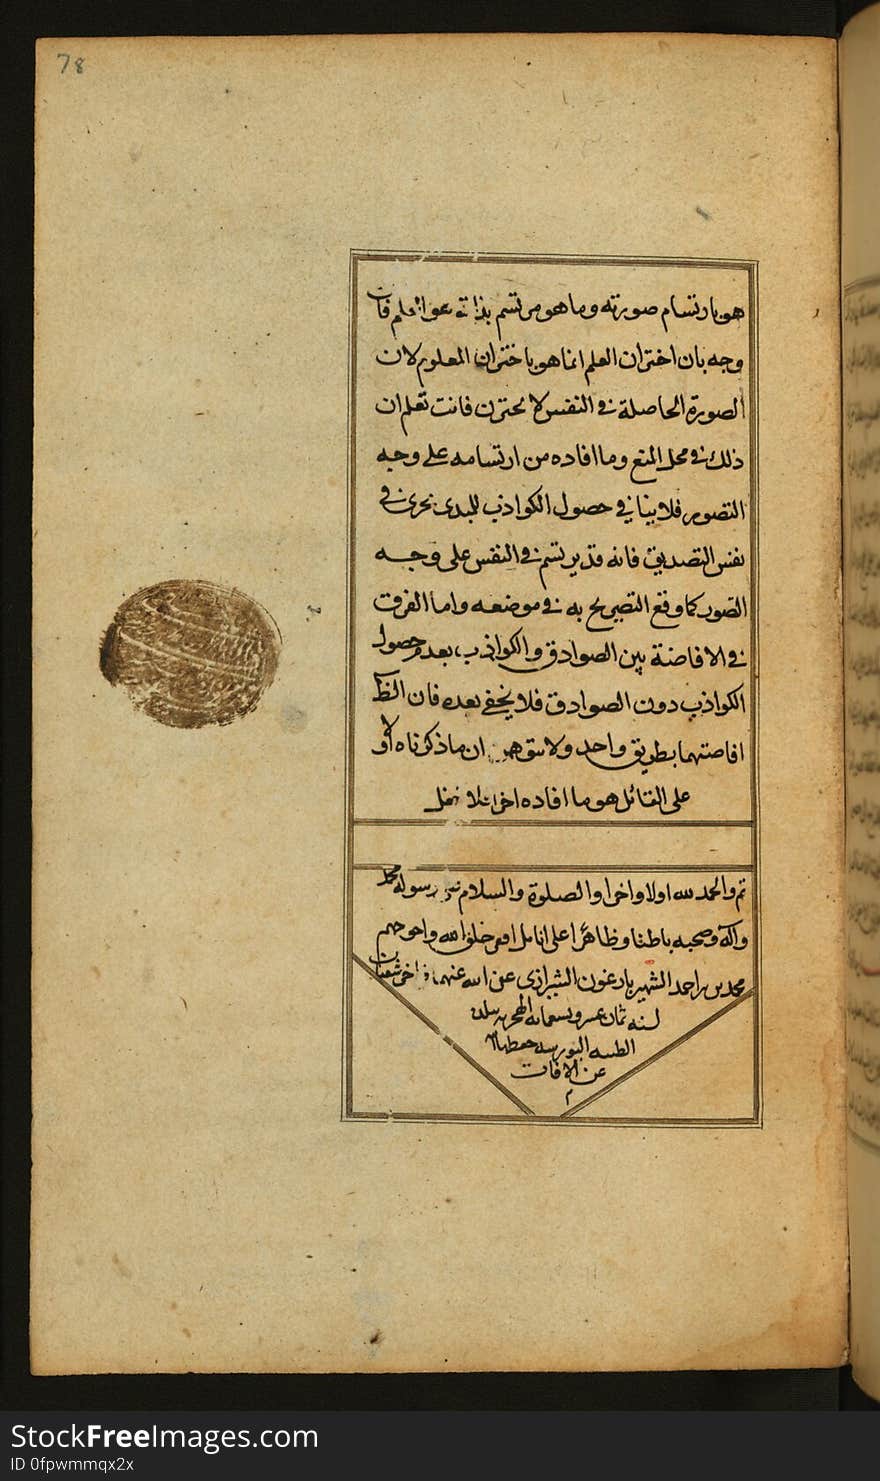 78
هو بارتسام صورته وما هو مرتسم بذاته هو العلم فان
وجه بان اختزان العلم انما هو باختزان المعلوم لان
الصورة الحاصلة في النفس لا تختزن فانت تعلم ان
ذلك في محل المنع وما افاده من ارتسامه على وجه
التصور فلا ينافي حصول الكواذب للمبدئ في
نفس التصديق فانه قد يرتسم في النفس على وجه
التصور كما وقع التصريح به في موضعه واما الفرق
في الافاضة بين الصوادق والكواذب بعد حصول
الكواذب دون الصوادق فلا يخفى بعده فان الظ
افاضتهما بطريق واحد ولا يتوهم ان ما ذكرناه
على القائل هو ما افاده اخرا
تم والحمد لله اولا واخرا والصلوة والسلام على رسوله محمد
واله وصحبه باطنا وظاهرا على انامل افقر خلق الله واحوجهم
محمد بن احمد الشهير بارغون الشيرازي عن الله عنهما شعبان
لسنه ثمان عشر وتسعمايه الهجريه
عن الافات
م
StockFreeImages.com
ID 0fpwmmqx2x